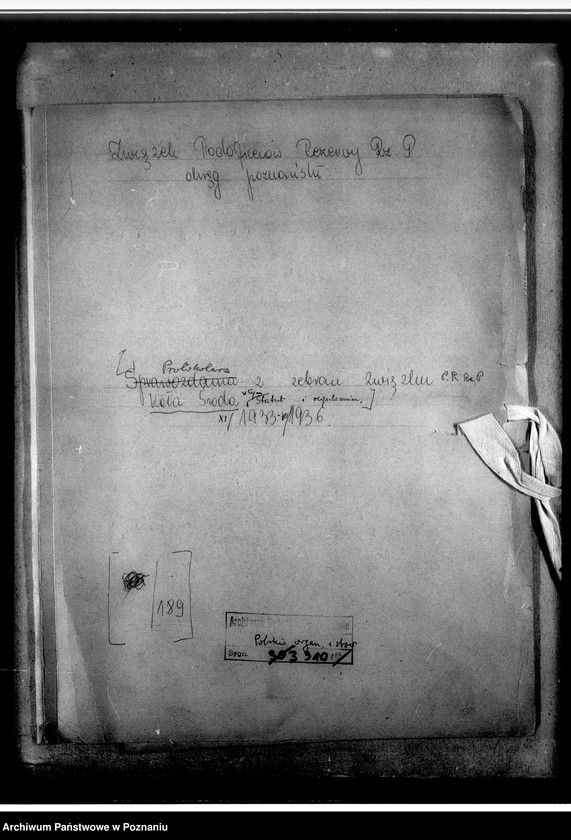 Związek Podoficerów Rezerwy Rz. P
okręg poznański
Protokolarz
Sprawozdania z zebran Związku P.R. Rz P
Koła Środa Statut i regulamin.]
XI/1933-/1936
189
Archiwum
Polskie organ. i stow
Sygn. 910
Archiwum Państwowe w Poznaniu